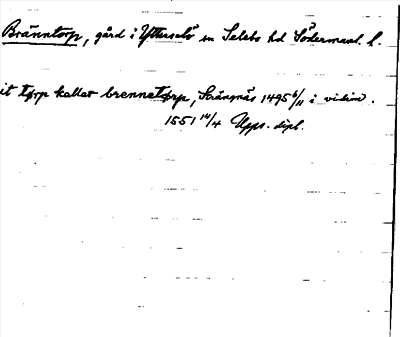 Bränntorp, gård i Ytterselö sn Selebo hd Södermanl. l.
it torp kallet brennetorp, Strängnäs 1495 6/11 i vidim.
1551 14/4 Upps. dipl.